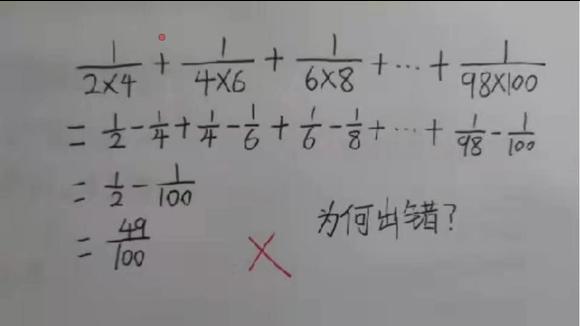 1/(2×4) + 1/(4×6) + 1/(6×8) + ··· + 1/(98×100)
= 1/2 - 1/4 + 1/4 - 1/6 + 1/6 - 1/8 + ··· + 1/98 - 1/100
= 1/2 - 1/100
= 49/100
为何出错?